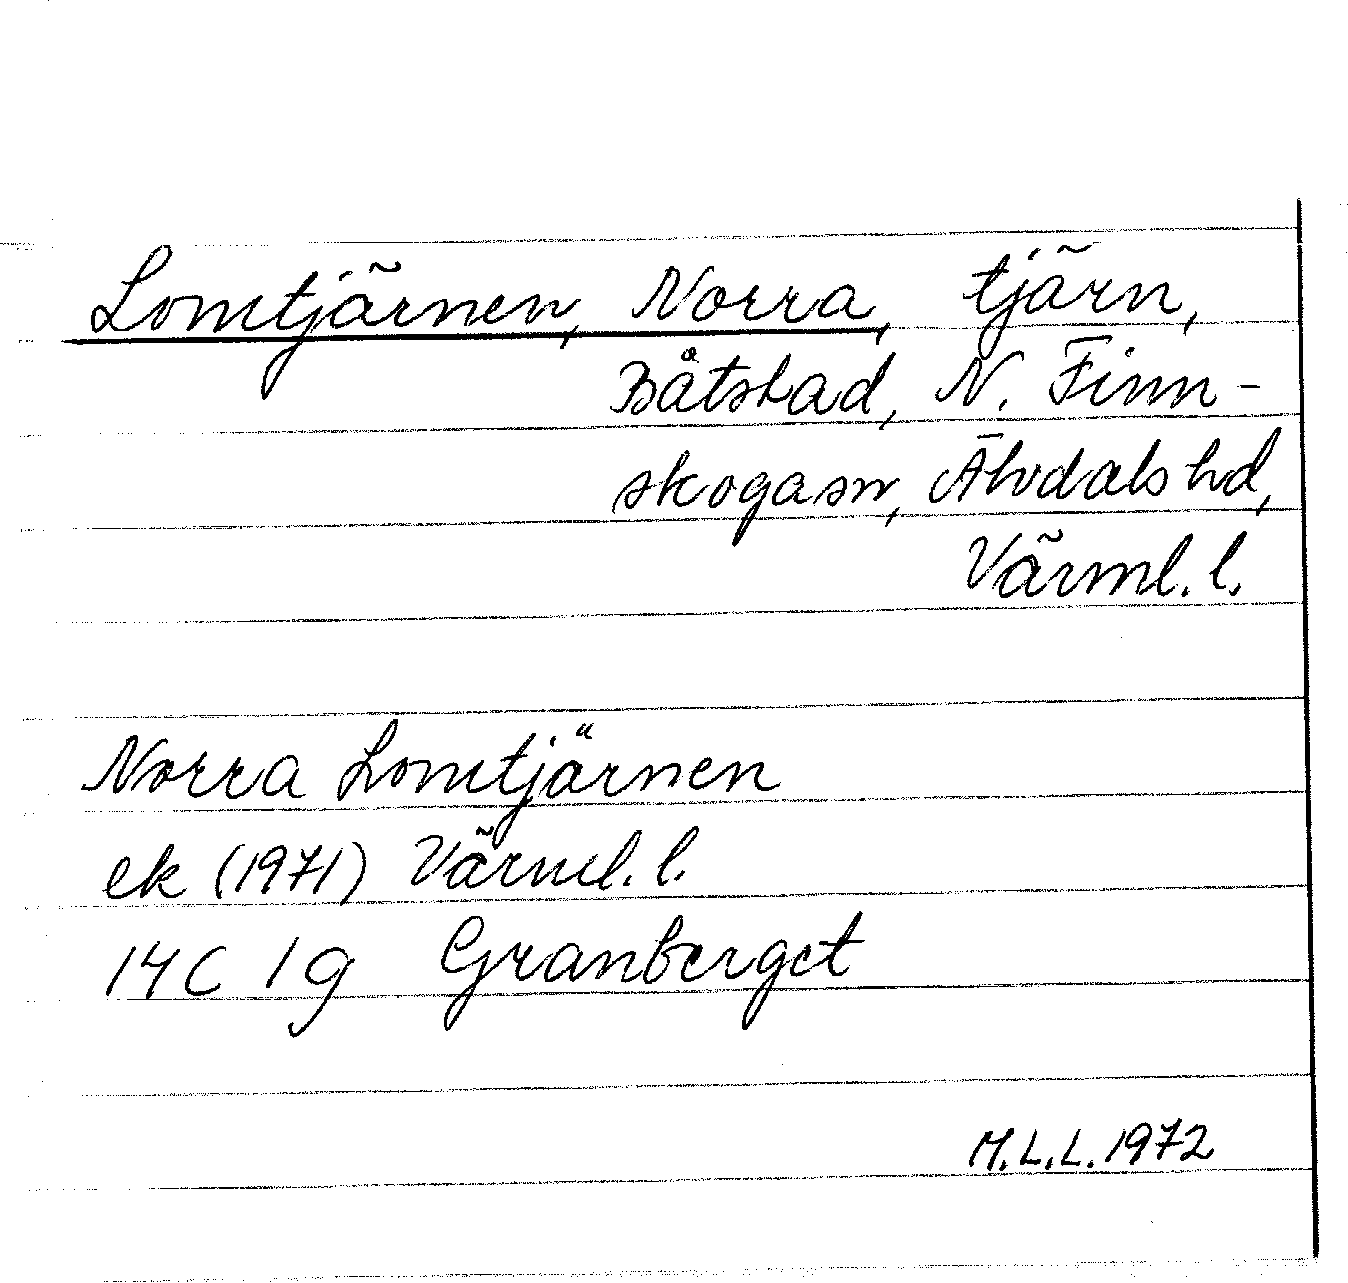 Lomtjärnen, Norra, tjärn,
Båtstad, N. Finn-
skogasn, Älvdals hd,
Värml. l.
Norra Lomtjärnen
ek (1971) Värml. l.
14C 1g Granberget
M.L.L. 1972